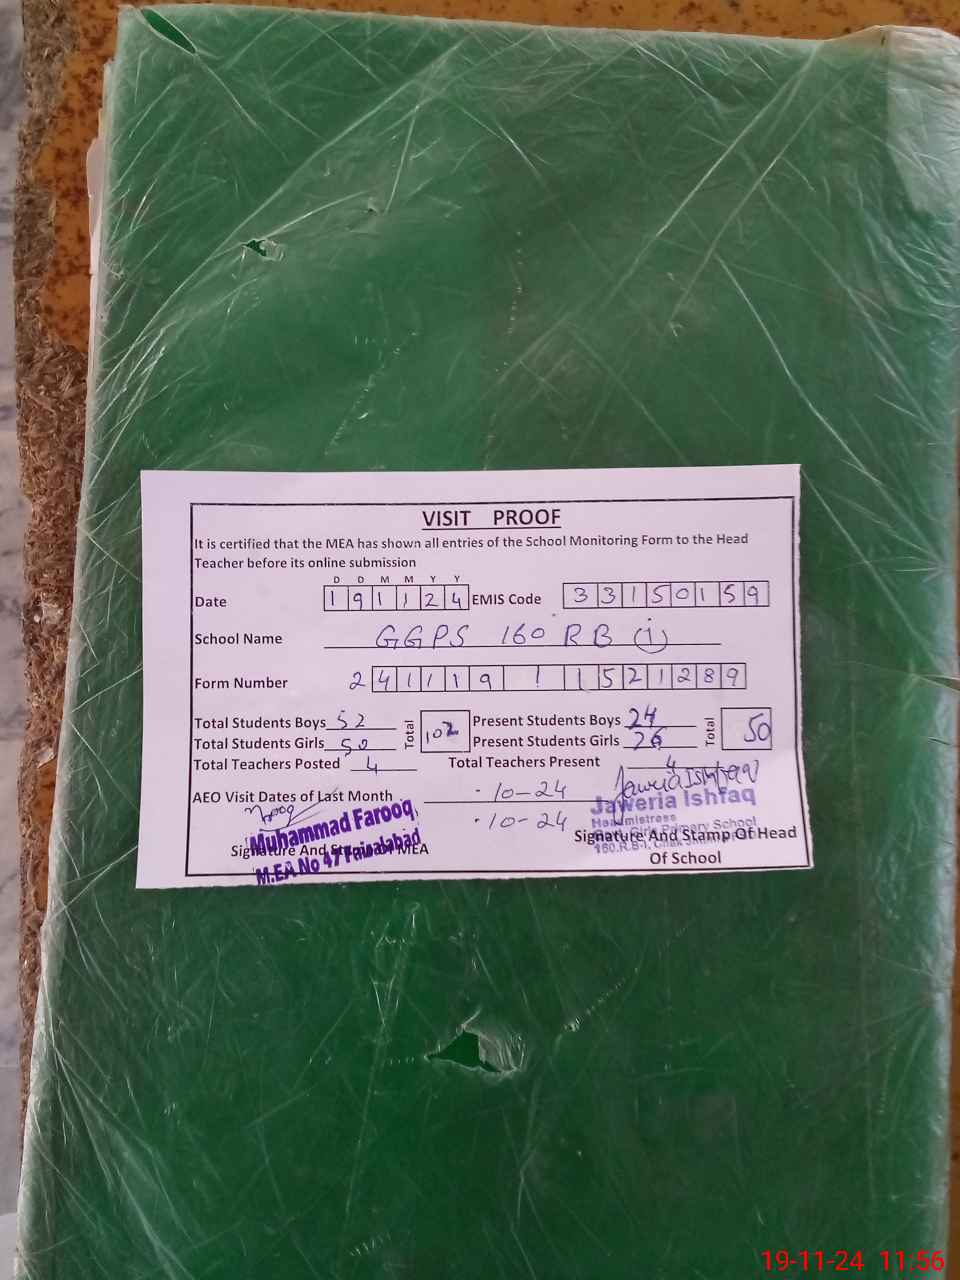 VISIT PROOF
It is certified that the MEA has shown all entries of the School Monitoring Form to the Head
Teacher before its online submission
D D M M Y Y
Date 1 9 1 1 2 4 EMIS Code 3 3 1 5 0 1 5 9
School Name GGPS 160 RB (i)
Form Number 2 4 1 1 1 9 1 1 5 2 1 2 8 9
Total Students Boys 52 Total 102 Present Students Boys 24 Total 50
Total Students Girls 50 Present Students Girls 26
Total Teachers Posted 4 Total Teachers Present 4
AEO Visit Dates of Last Month -10-24 Jaweria Ishfaq
-10-24
Muhammad Farooq
M.EA No 47 Faisalabad
Signature And Stamp of MEA
Jaweria Ishfaq
Headmistress
Girls Primary School
160.R.B-I, Chak
Signature And Stamp Of Head
Of School
19-11-24 11:56